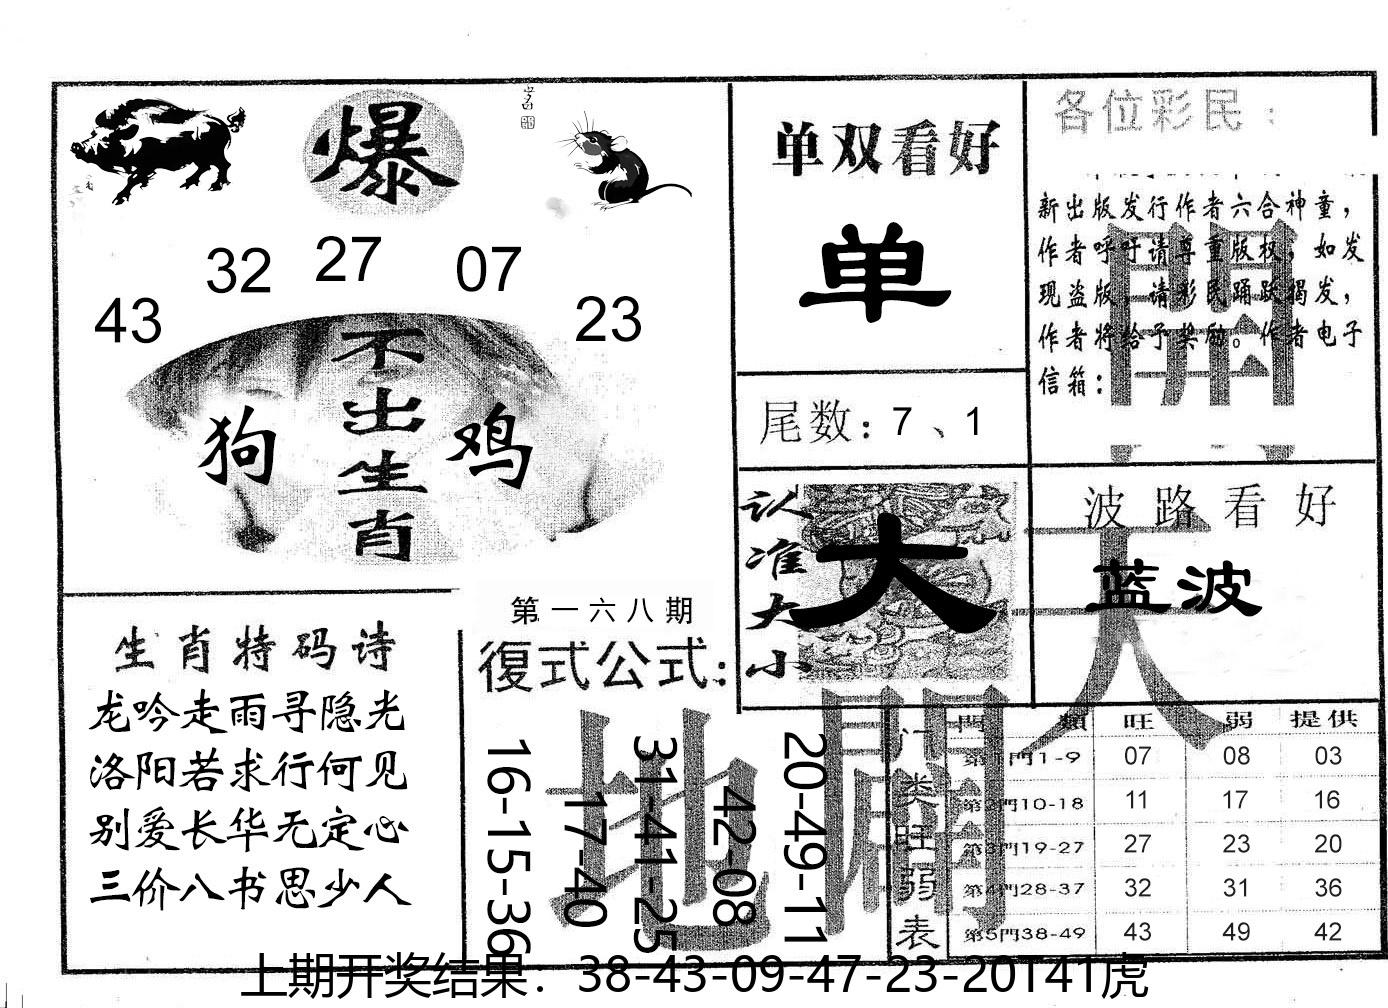 爆
43 32 27 07 23
不出生肖
狗 鸡
生肖特码诗
龙吟走雨寻隐光
洛阳若求行何见
别爱长华无定心
三价八书思少人
第一六八期
復式公式:
16-15-36
17-40
31-41-25
42-08
20-49-11
单双看好
单
尾数: 7、1
认准大小
大
各位彩民:
新出版发行作者六合神童,
作者呼吁请尊重版权,如发
现盗版,请彩民踊跃揭发,
作者将给予奖励。作者电子
信箱:
波路看好
蓝波
天地
门类旺弱表
門類 旺 弱 提供
第1門1-9 07 08 03
第2門10-18 11 17 16
第3門19-27 27 23 20
第4門28-37 32 31 36
第5門38-49 43 49 42
上期开奖结果: 38-43-09-47-23-20T41虎